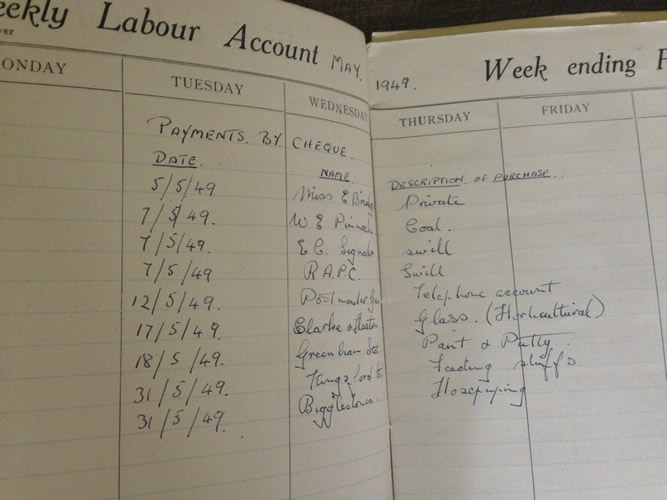 eekly Labour Account MAY.
1949. Week ending F
yer
ONDAY TUESDAY WEDNESDAY THURSDAY FRIDAY
PAYMENTS. BY. CHEQUE.
DATE. NAME. DESCRIPTION OF PURCHASE.
5/5/49 Miss E Private
7/5/49. W E Coal.
7/5/49. E C. swill
7/5/49 R.A.P.C. Swill
12/5/49. Postmaster Telephone account
17/5/49. Clarke Glass. (Horticultural)
18/5/49. Greenham Paint & Putty.
31/5/49. Kingsford Feeding stuffs
31/5/49. Bigglestones. Hosepiping